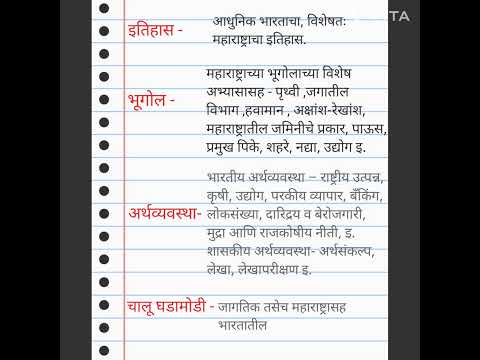 TA
इतिहास - आधुनिक भारताचा, विशेषतः
महाराष्ट्राचा इतिहास.
महाराष्ट्राच्या भूगोलाच्या विशेष
अभ्यासासह - पृथ्वी ,जगातील
भूगोल - विभाग ,हवामान , अक्षांश-रेखांश,
महाराष्ट्रातील जमिनीचे प्रकार, पाऊस,
प्रमुख पिके, शहरे, नद्या, उद्योग इ.
भारतीय अर्थव्यवस्था – राष्ट्रीय उत्पन्न,
कृषी, उद्योग, परकीय व्यापार, बँकिंग,
अर्थव्यवस्था- लोकसंख्या, दारिद्रय व बेरोजगारी,
मुद्रा आणि राजकोषीय नीती, इ.
शासकीय अर्थव्यवस्था- अर्थसंकल्प,
लेखा, लेखापरीक्षण इ.
चालू घडामोडी - जागतिक तसेच महाराष्ट्रासह
भारतातील